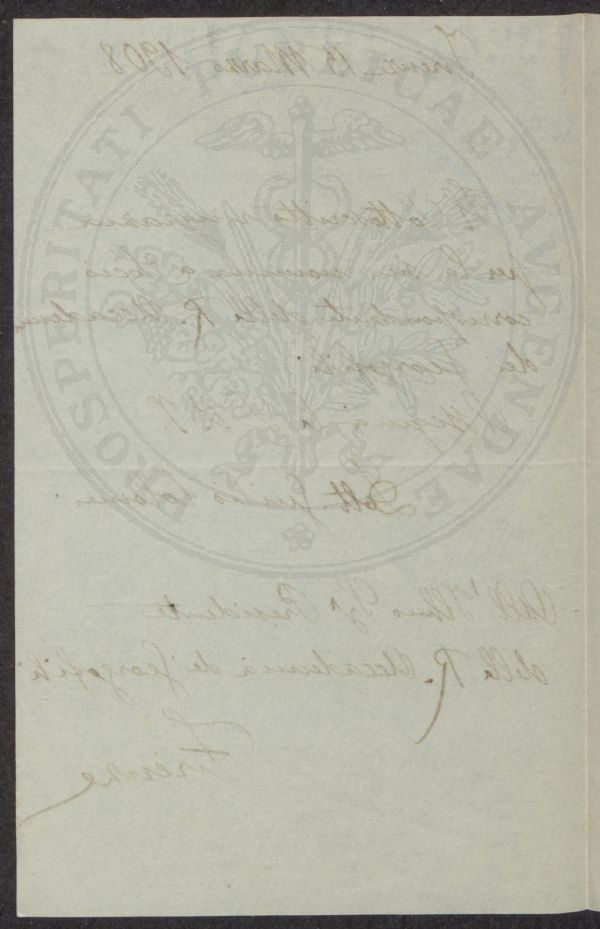 PROSPERITATI PUBLICAE AUGENDAE
Firenze 13 Marzo 1908
Il sottoscritto ringrazia
per la sua nomina a Socio
corrispondente della R. Accadem.
dei Georgofili
Dott.
All' Illmo Sigr Presidente
della R. Accademia dei Georgofili
Firenze